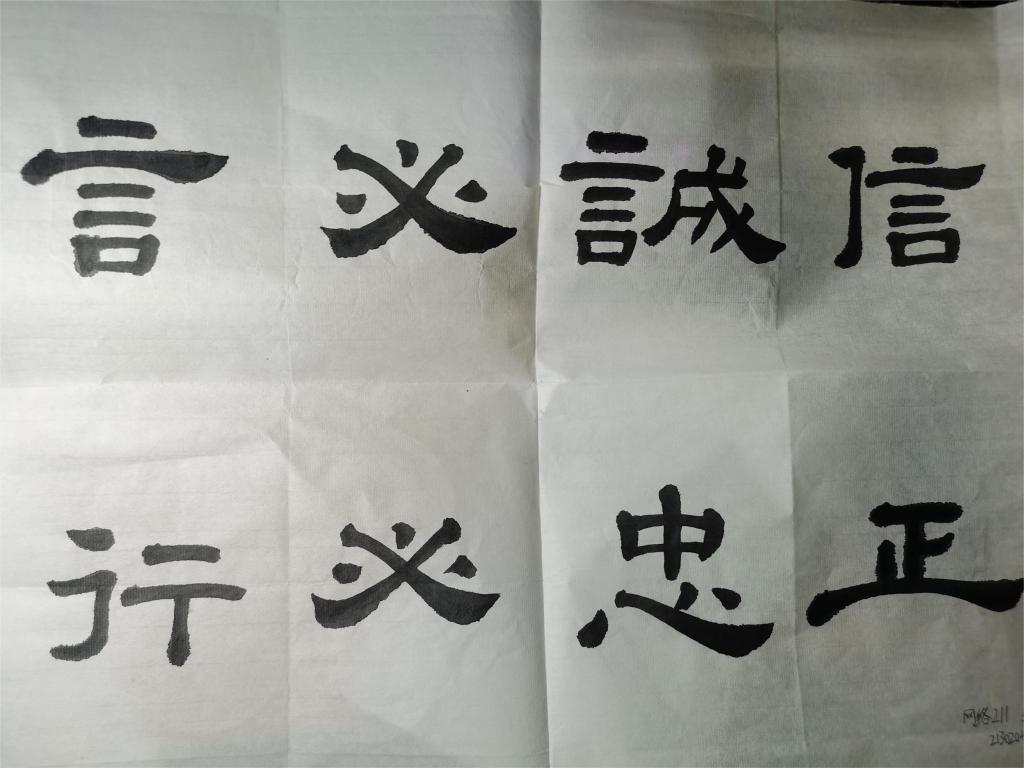 言必誠信
行必忠正
网络211